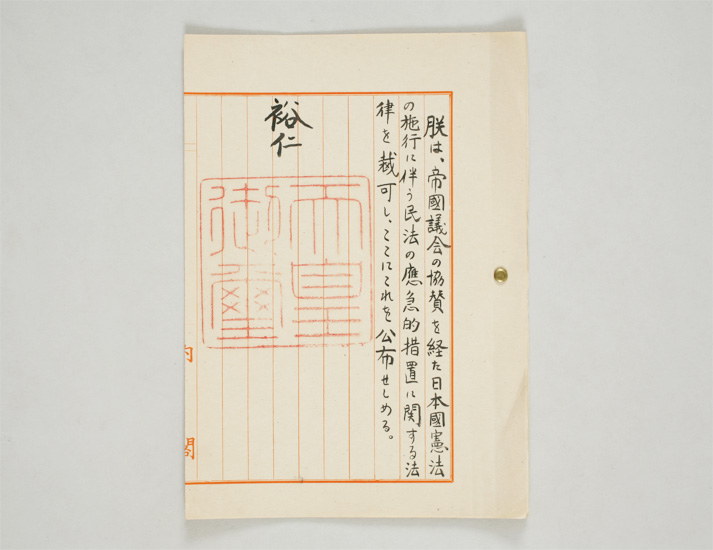 朕は、帝國議会の協賛を経た日本國憲法
の施行に伴う民法の應急的措置に関する法
律を裁可し、ここにこれを公布せしめる。
裕仁
天皇
御璽
内閣